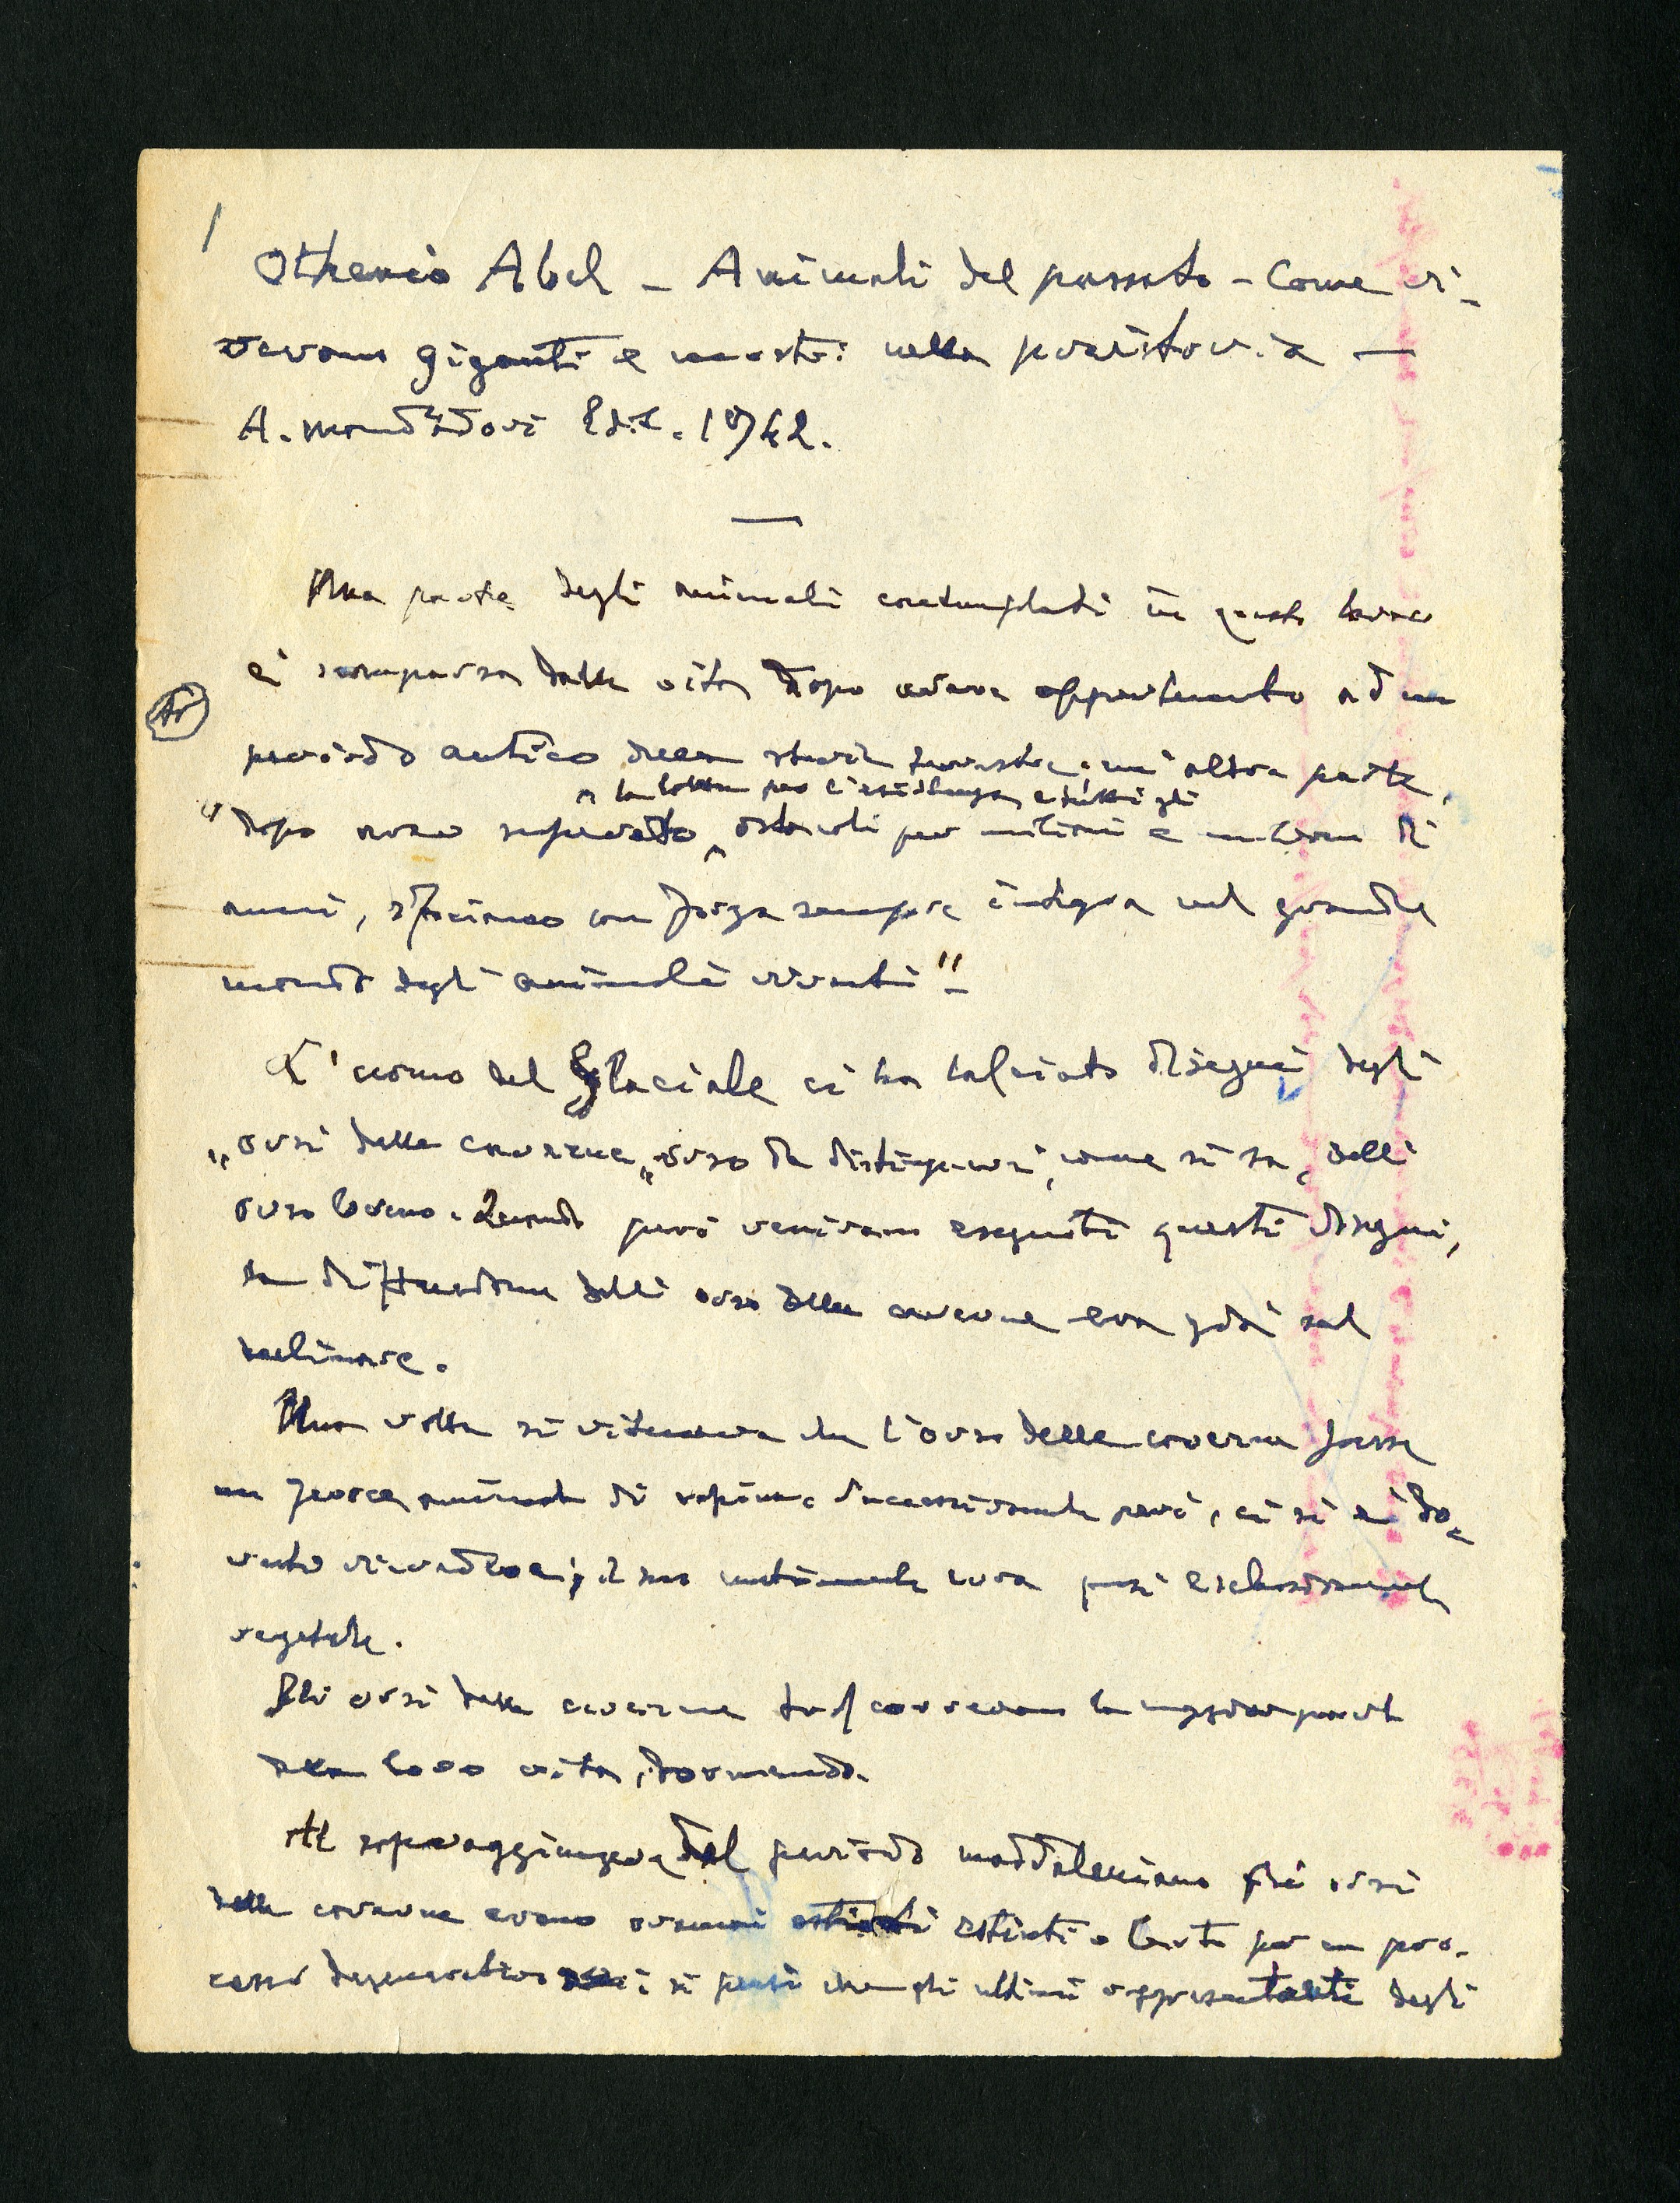 1
Othenio Abel - Animali del passato - Come vi-
vevano giganti e mostri nella preistoria —
A. Mondadori Edit. 1942.
Una parte degli animali contemplati in questo lavoro
è scomparsa dalla vita dopo avere appartenuto ad un
periodo antico della storia terrestre; un'altra parte,
la lotta per l'esistenza e tutti gli
"dopo avere superato ostacoli per milioni e milioni di
anni, con forza sempre integra nel grande
mondo degli animali viventi"
L'uomo del glaciale ci ha lasciato disegni degli
"orsi delle caverne" orso da distinguersi, come si sa, dell'
orso bruno. Quando però venivano eseguiti questi disegni,
la diffusione dell'orso delle caverne era già sul
declinare.
Una volta si riteneva che l'orso delle caverne fosse
un feroce animale di rapina; successivamente però, ci si è do-
vuto ricredere; il suo nutrimento era quasi esclusivamente
vegetale.
Gli orsi delle caverne trascorrevano la maggior parte
della loro vita, dormendo.
Al sopraggiungere del periodo maddaleniano gli orsi
delle caverne erano oramai estinti per un pro-
cesso degenerativo si pensi che gli ultimi rappresentanti degli